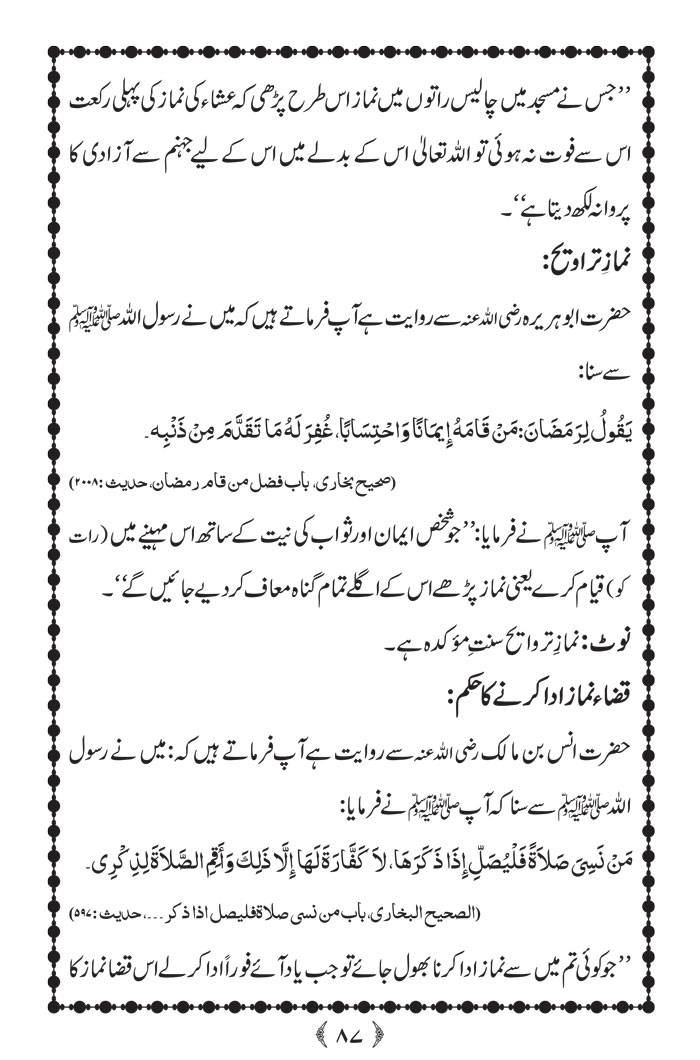 ’’جس نے مسجد میں چالیس راتوں میں نماز اس طرح پڑھی کہ عشاء کی نماز کی پہلی رکعت
اس سے فوت نہ ہوئی تو اللہ تعالیٰ اس کے بدلے میں اس کے لیے جہنم سے آزادی کا
پروانہ لکھ دیتا ہے‘‘۔
نمازِ تراویح:
حضرت ابو ہریرہ رضی اللہ عنہ سے روایت ہے آپ فرماتے ہیں کہ میں نے رسول اللہ ﷺ
سے سنا:
يَقُولُ لِرَمَضَانَ: مَنْ قَامَهُ إِيمَانًا وَاحْتِسَابًا، غُفِرَ لَهُ مَا تَقَدَّمَ مِنْ ذَنْبِه۔
(صحیح بخاری، باب فضل من قام رمضان، حدیث :۲۰۰۸)
آپ ﷺ نے فرمایا: ’’جو شخص ایمان اور ثواب کی نیت کے ساتھ اس مہینے میں (رات
کو) قیام کرے یعنی نماز پڑھے اس کے اگلے تمام گناہ معاف کر دیے جائیں گے‘‘۔
نوٹ: نمازِ تروایح سنتِ مؤکدہ ہے۔
قضاء نماز ادا کرنے کا حکم:
حضرت انس بن مالک رضی اللہ عنہ سے روایت ہے آپ فرماتے ہیں کہ: میں نے رسول
اللہ ﷺ سے سنا کہ آپ ﷺ نے فرمایا:
مَنْ نَسِيَ صَلاَةً فَلْيُصَلِّ إِذَا ذَكَرَهَا، لاَ كَفَّارَةَ لَهَا إِلَّا ذَلِكَ وَأَقِمِ الصَّلاَةَ لِذِكْرِي۔
(الصحیح البخاری، باب من نسی صلاۃ فلیصل اذا ذکر ۔۔۔، حدیث :۵۹۷)
’’جو کوئی تم میں سے نماز ادا کرنا بھول جائے تو جب یاد آئے فوراً ادا کر لے اس قضا نماز کا
۸۷